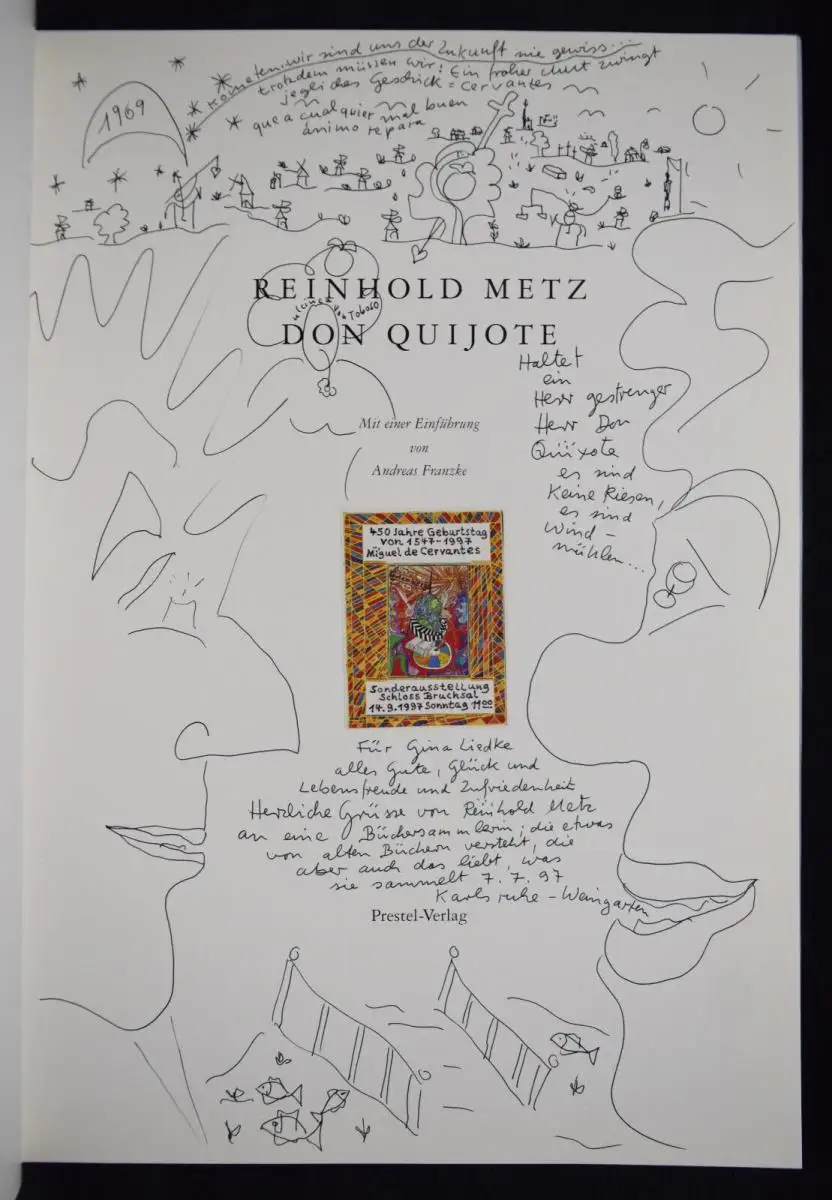 Kometen. wir sind uns der Zukunft nie gewiss...
trotzdem müssen wir! Ein froher Mut zwingt
jegliches Geschick = Cervantes
que a cualquier mal buen
ánimo repara
1969
REINHOLD METZ
von Toboso
DON QUIJOTE
Haltet
ein
Herr gestrenger
Herr Don
Quixote
es sind
keine Riesen,
es sind
Wind-
mühlen...
Mit einer Einführung
von
Andreas Franzke
450 Jahre Geburtstag
von 1547-1997
Miguel de Cervantes
Sonderausstellung
Schloss Bruchsal
14.9.1997 Sonntag 11 00
Für Gina Liedke
alles Gute, Glück und
Lebensfreude und Zufriedenheit
Herzliche Grüsse von Reinhold Metz
an eine Büchersammlerin; die etwas
von alten Büchern versteht, die
aber auch das liebt, was
sie sammelt 7.7.97
Karlsruhe-Weingarten
Prestel-Verlag